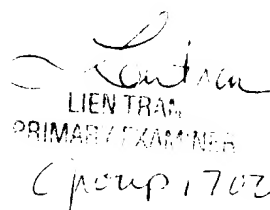 Lien Tran
LIEN TRAN
PRIMARY EXAMINER
Group 1702